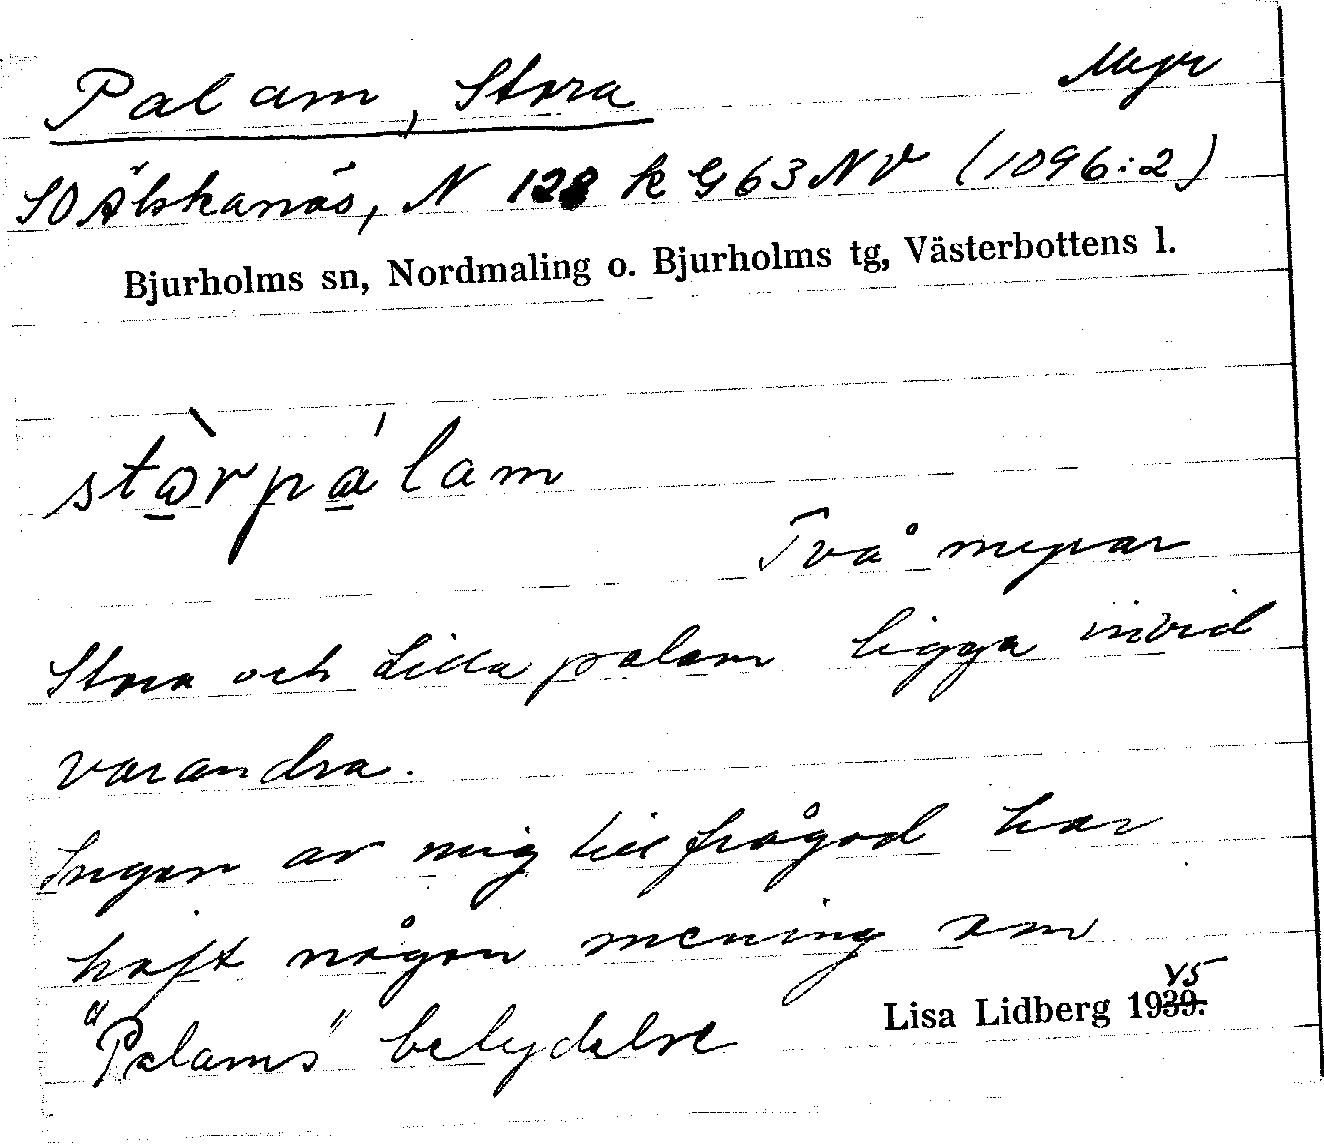 Palam, Stora Myr
SO Älskanäs, N 128 k G 63 NV (1096:2)
Bjurholms sn, Nordmaling o. Bjurholms tg, Västerbottens l.
stò̱rpá̱lam
Två myrar
Stora och Lilla palam ligga invid
varandra.
Ingen av mig tillfrågad har
haft någon mening om
"Palams" betydelse
Lisa Lidberg 1939. 45